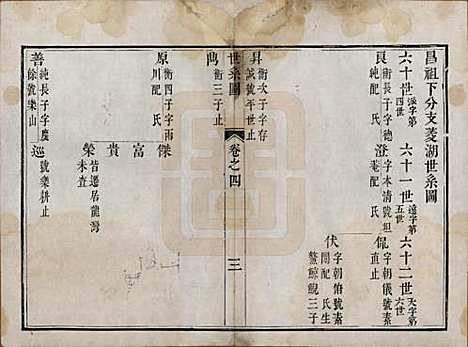 昌祖下分支菱湖世系圖
六十世 派字第四世 六十一世 遠字第五世 六十二世 天字第六世
良 衛長子字德純配 氏
澄 字本清號坦菴配 氏
侃 字朝儀號素直止
伏 字朝俯號素闇配 氏生鰲鯨鯢三子
昇 衛次子字存誠號平世止
世系圖
卷之四
三
雋 衛三子止
原 衛四子字雨川配 氏
傑
富
貴
榮 皆遷居龍灣未查
善 純長子字慶餘號樂山
巡 號樂耕止